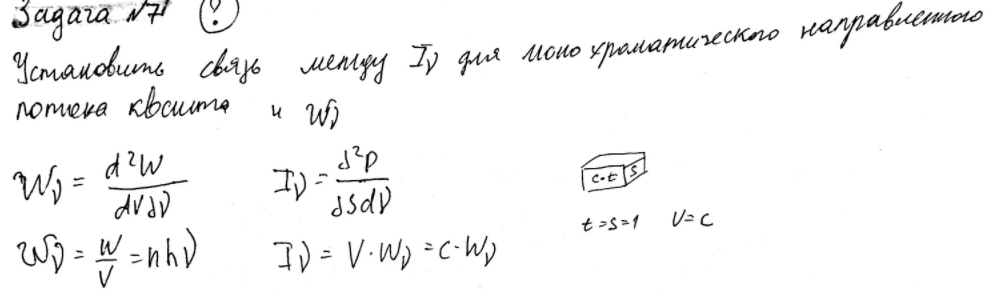 Задача №7 ?
Установить связь между Iν для монохроматического направленного
потока квантов и Wν
Wν = d²W / dVdν
Iν = d²P / dSdν
c·t S
t=s=1 V=c
Wν = W/V = nhν
Iν = V·Wν = c·Wν